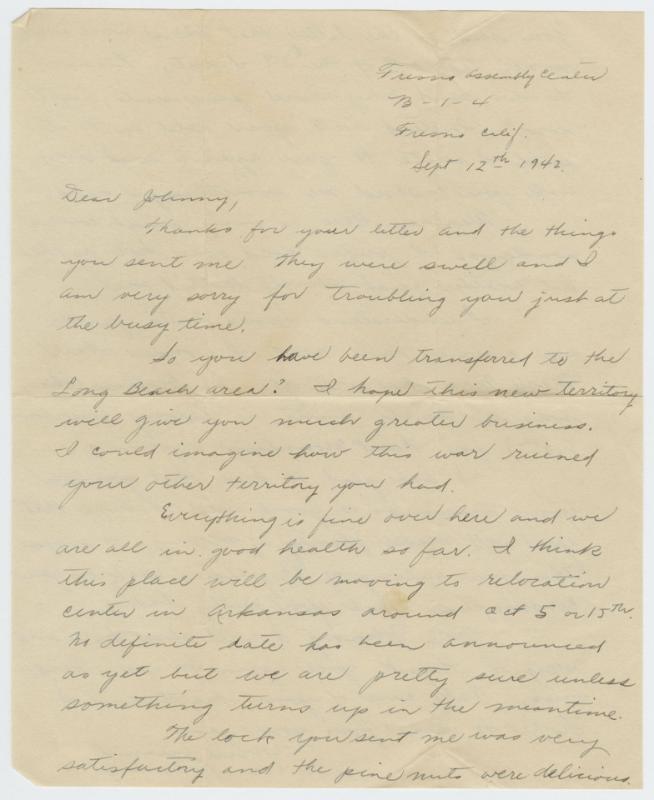 Fresno Assembly Center
B-1-4
Fresno Calif.
Sept 12th 1942.
Dear Johnny,
Thanks for your letter and the things
you sent me. They were swell and I
am very sorry for troubling you just at
the busy time.
So you have been transferred to the
Long Beach area? I hope this new territory
will give you much greater business.
I could imagine how this war ruined
your other territory you had.
Everything is fine over here and we
are all in good health so far. I think
this place will be moving to relocation
center in Arkansas around Oct 5 or 15th.
No definite date has been announced
as yet but we are pretty sure unless
something turns up in the meantime.
The lock you sent me was very
satisfactory and the pine nuts were delicious.